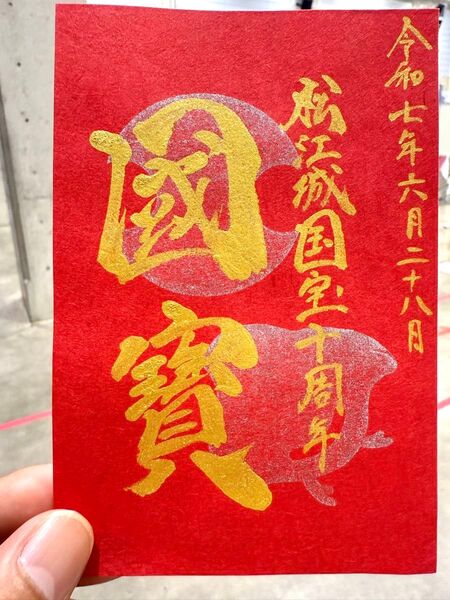 令和七年六月二十八日
松江城国宝十周年
國寶